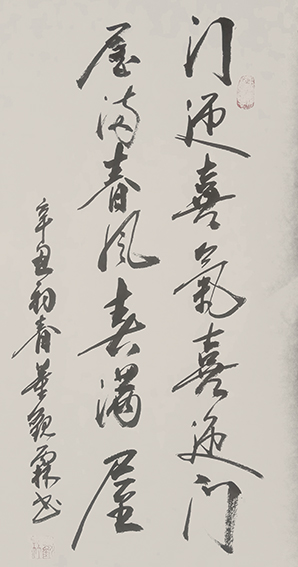 门迎喜氣喜迎门
屋满春风春满屋
辛丑初春董霖书